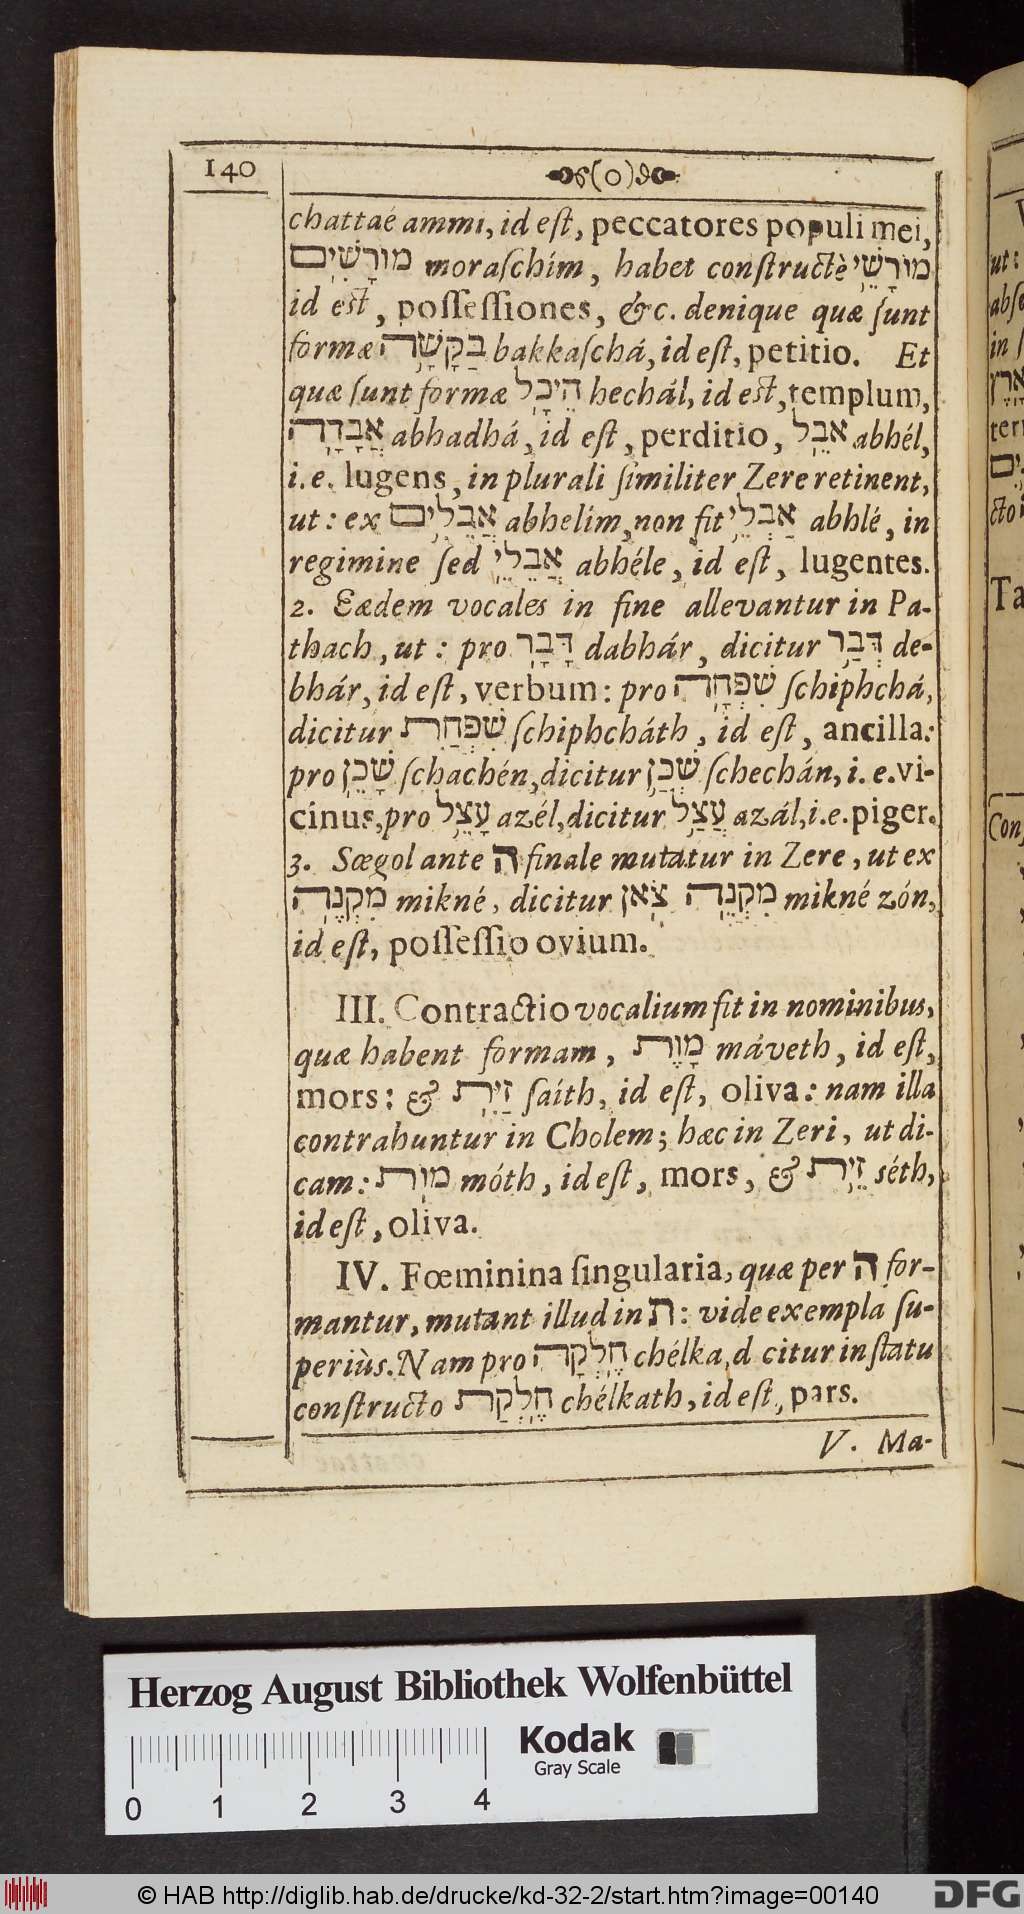 140
(0)
chattaé ammi, id eſt, peccatores populi mei,
מוֹרָשִׁים moraſchím, habet conſtructè מוֹרָשֵׁי
id eſt, poſſeſſiones, &c. denique quæ ſunt
formæ בַּקָּשָׁה bakkaſchá, id eſt, petitio. Et
quæ ſunt formæ הֵיכָל hechál, id eſt, templum,
אֲבָדָה abhadhá, id eſt, perditio, אבֵל abhél,
i.e. lugens, in plurali ſimiliter Zere retinent,
ut: ex אֲבֵלִים abhelim, non fit אַבְלֵי abhlé, in
regimine ſed אֲבֵלֵי abhéle, id eſt, lugentes.
2. Eædem vocales in fine allevantur in Pa-
thach, ut: pro דָּבָר dabhár, dicitur דְּבַר de-
bhár, id eſt, verbum: pro שִׁפְחָה ſchiphchá,
dicitur שִׁפְחַת ſchiphcháth, id eſt, ancilla:
pro שָׁכֵן ſchachén, dicitur שְׁכַן ſchechán, i.e. vi-
cinus, pro עָצֵל azél, dicitur עֲצַל azál, i.e. piger.
3. Sœgol ante ה finale mutatur in Zere, ut ex
מִקְנֶה mikné, dicitur מִקְנֵה צֹאן mikné zón,
id eſt, poſſeſſio ovium.
III. Contractio vocalium fit in nominibus,
quæ habent formam, מָוֶת máveth, id eſt,
mors: & זַיִת ſaíth, id eſt, oliva: nam illa
contrahuntur in Cholem; hæc in Zeri, ut di-
cam: מוֹת móth, id eſt, mors, & זֵית séth,
id eſt, oliva.
IV. Fœminina ſingularia, quæ per ה for-
mantur, mutant illud in ת: vide exempla ſu-
periùs. Nam pro חֶלְקָה chélka, d citur in ſtatu
conſtructo חֶלְקַת chélkath, id eſt, pars.
V. Ma-
ut:
in
Ta
Herzog August Bibliothek Wolfenbüttel
Kodak
Gray Scale
0 1 2 3 4
© HAB http://diglib.hab.de/drucke/kd-32-2/start.htm?image=00140
DFG